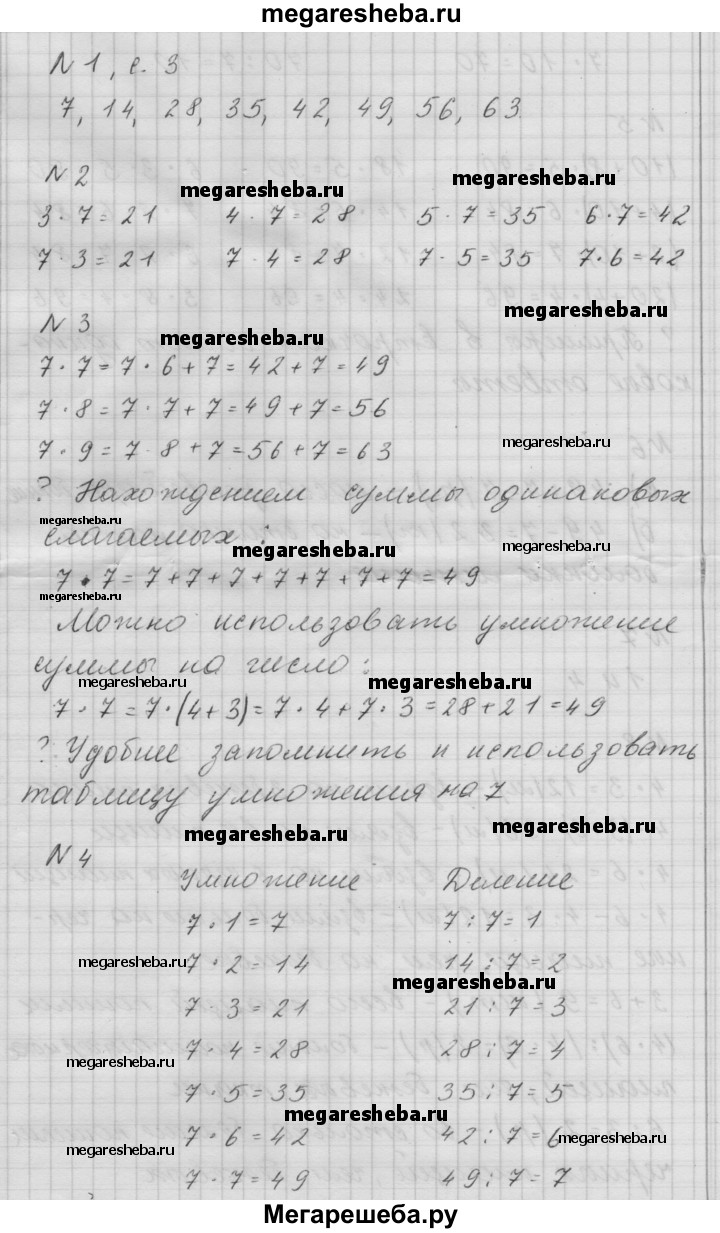 megaresheba.ru
N 1, с. 3
7, 14, 28, 35, 42, 49, 56, 63
N 2
megaresheba.ru megaresheba.ru
3 · 7 = 21 4 · 7 = 28 5 · 7 = 35 6 · 7 = 42
7 · 3 = 21 7 · 4 = 28 7 · 5 = 35 7 · 6 = 42
megaresheba.ru
N 3
megaresheba.ru
7 · 7 = 7 · 6 + 7 = 42 + 7 = 49
7 · 8 = 7 · 7 + 7 = 49 + 7 = 56
7 · 9 = 7 · 8 + 7 = 56 + 7 = 63
megaresheba.ru
? Нахождением суммы одинаковых
megaresheba.ru
слагаемых :
megaresheba.ru megaresheba.ru
7 · 7 = 7 + 7 + 7 + 7 + 7 + 7 + 7 = 49
megaresheba.ru
Можно использовать умножение
суммы на число :
megaresheba.ru megaresheba.ru
7 · 7 = 7 · (4 + 3) = 7 · 4 + 7 · 3 = 28 + 21 = 49
? Удобнее запомнить и использовать
таблицу умножения на 7
megaresheba.ru megaresheba.ru
N 4
Умножение Деление
7 · 1 = 7 7 : 7 = 1
megaresheba.ru
7 · 2 = 14 14 : 7 = 2
megaresheba.ru
7 · 3 = 21 21 : 7 = 3
7 · 4 = 28 28 : 7 = 4
megaresheba.ru
7 · 5 = 35 35 : 7 = 5
megaresheba.ru
7 · 6 = 42 42 : 7 = 6
megaresheba.ru megaresheba.ru
7 · 7 = 49 49 : 7 = 7
Мегарешеба.ру